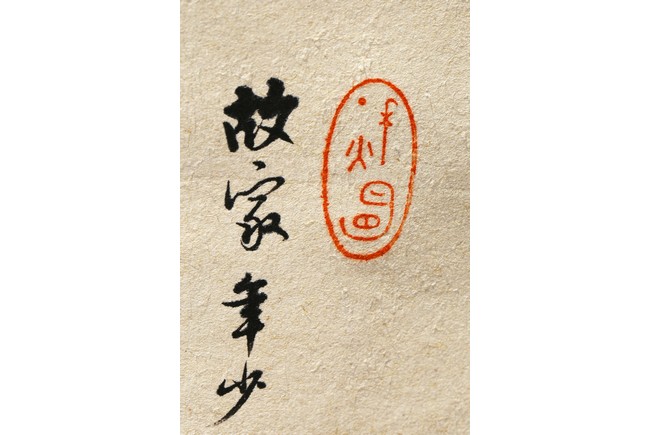 故家年少